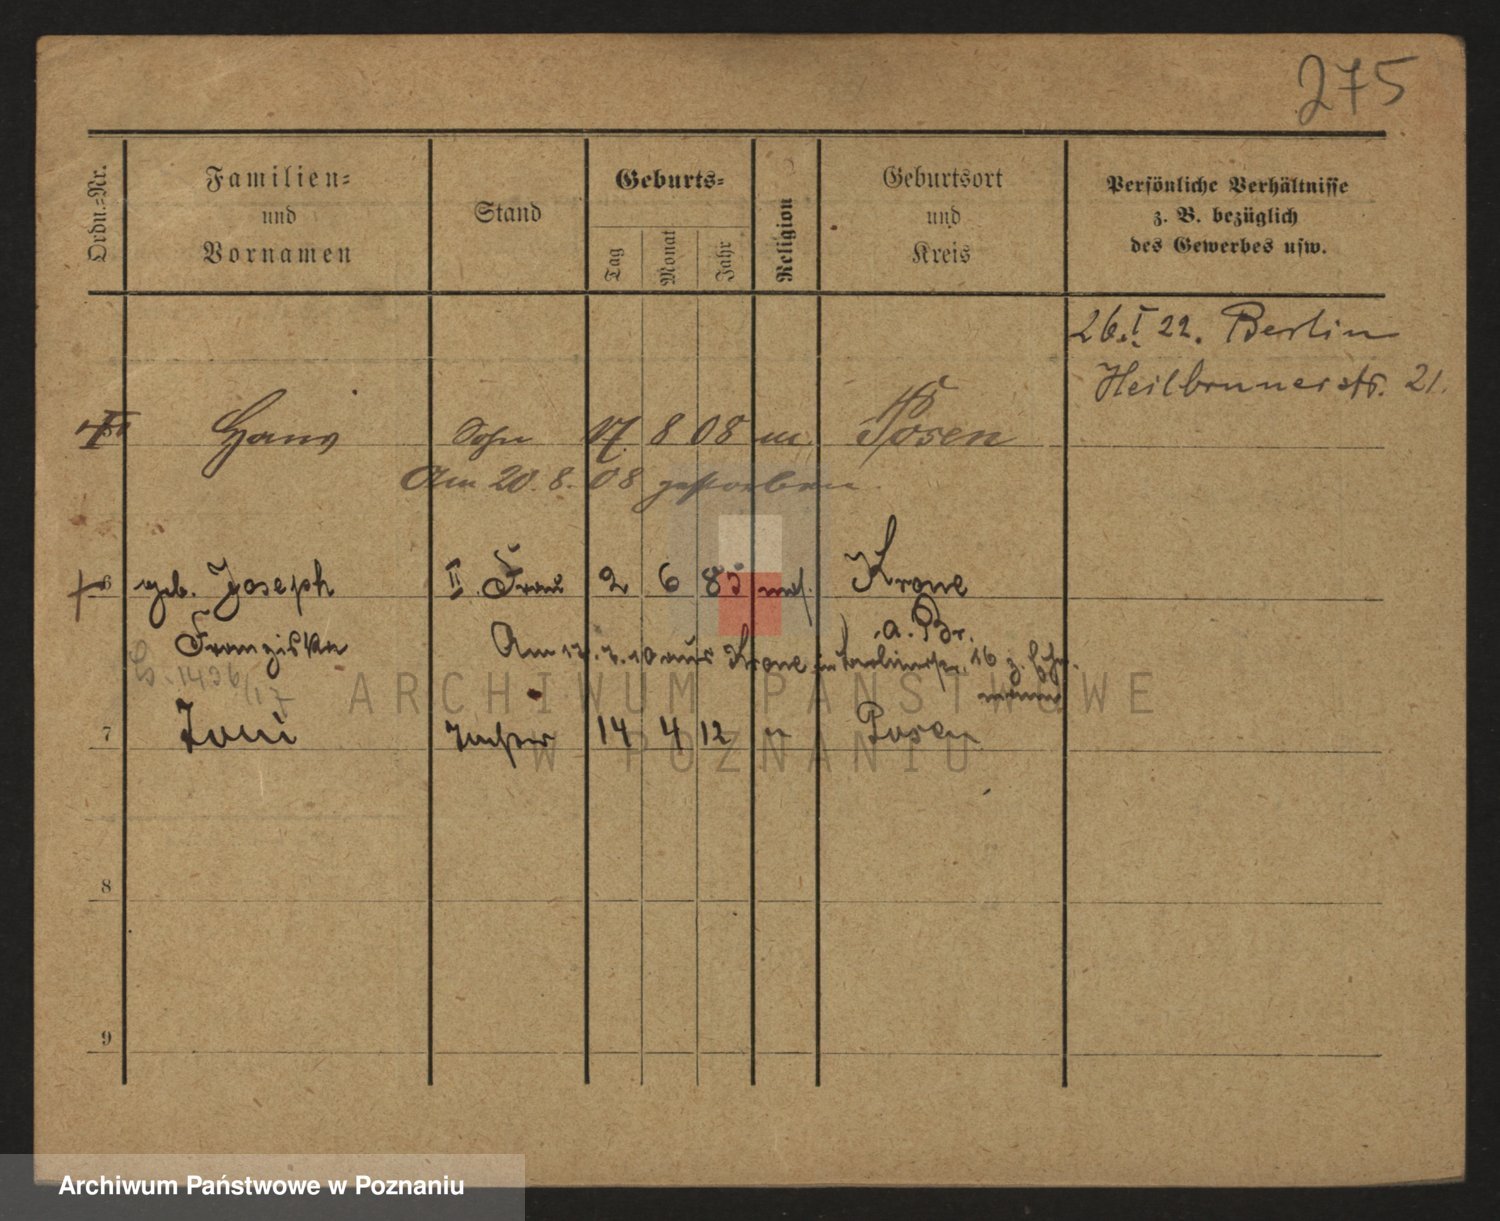 275
Ordn.-Nr.
Familien-
und
Vornamen
Stand
Geburts-
Tag
Monat
Jahr
Religion
Geburtsort
und
Kreis
Persönliche Verhältnisse
z. B. bezüglich
des Gewerbes usw.
26.I.22. Berlin
Heilbrunnerstr. 21.
Hans Sohn 17. 8 08 m. Posen
Am 20.8.08 gestorben.
6 geb. Joseph II. Frau 2 6 85 mos. Krone
Franziska
a. Br.
Am 12.7.10 aus Krone in 16 z.
7 Toni Tochter 14 4 12 " Posen
8
9
ARCHIWUM PAŃSTWOWE
W POZNANIU
Archiwum Państwowe w Poznaniu